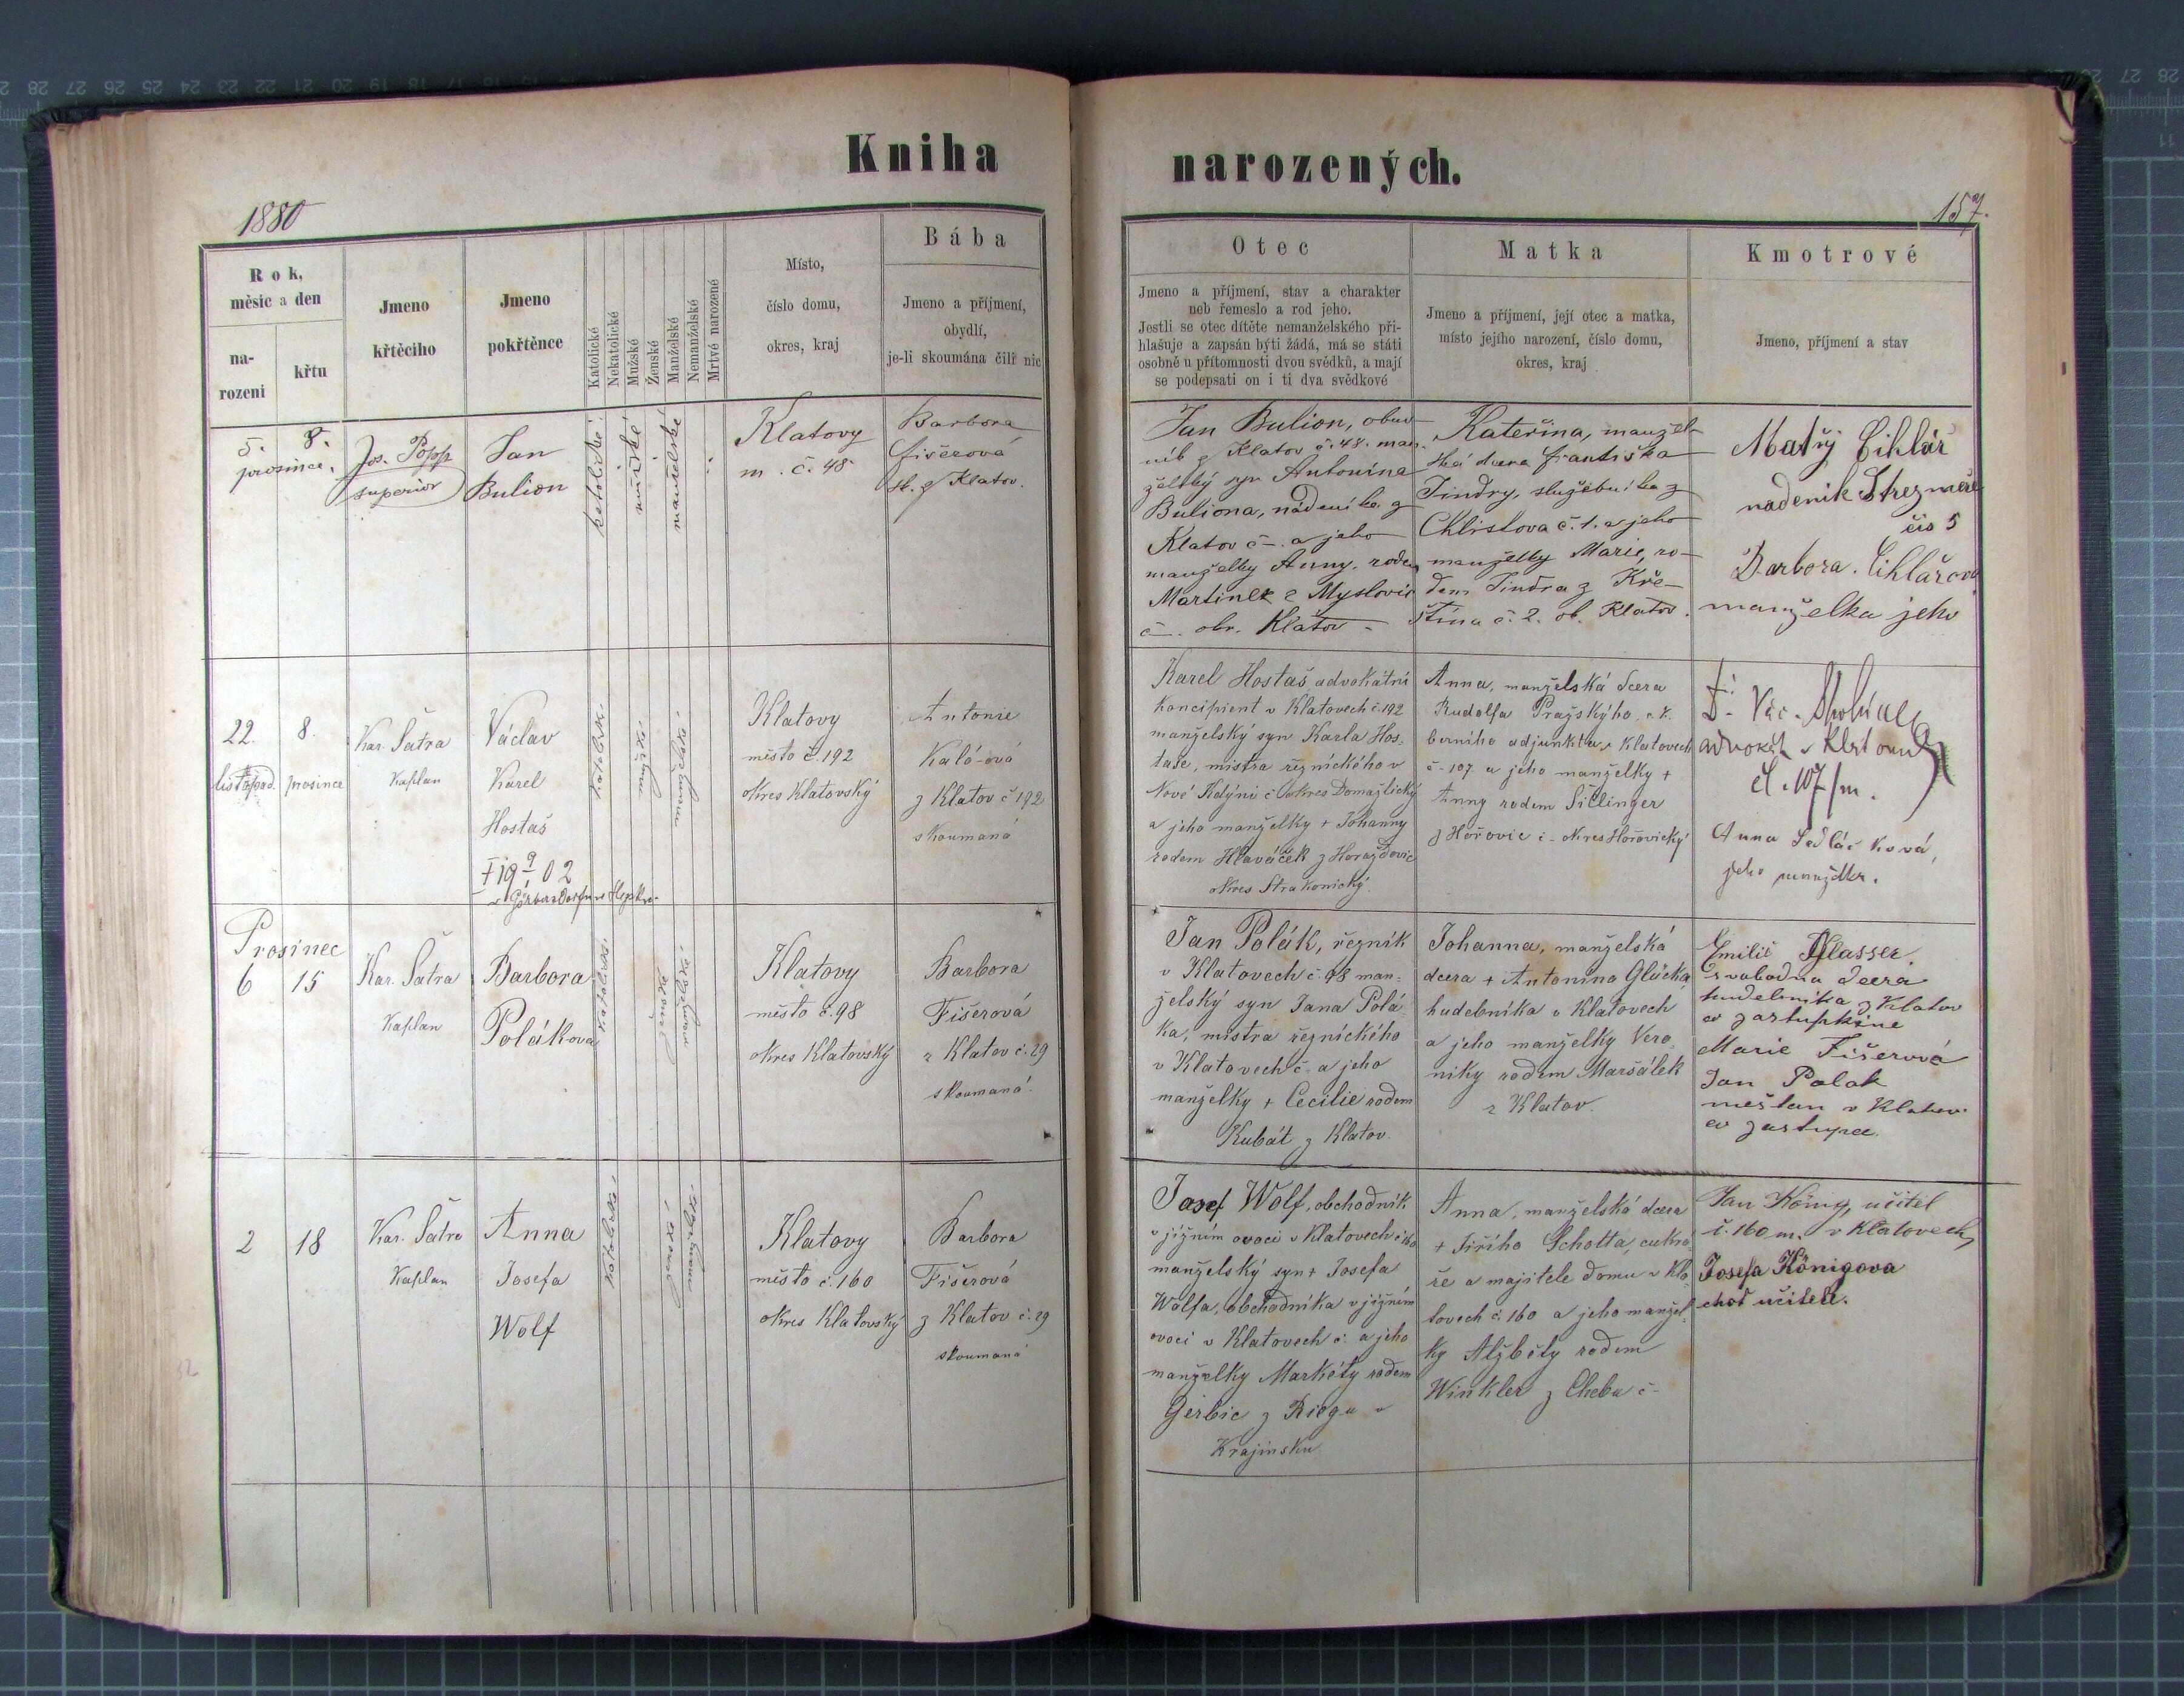 Kniha narozených.
1880
157.
Rok,
měsíc a den
na-
rozeni
křtu
Jmeno
křtěcího
Jmeno
pokřtěnce
Katolické
Nekatolické
Mužské
Ženské
Manželské
Nemanželské
Mrtvé narozené
Místo,
číslo domu,
okres, kraj
Bába
Jmeno a příjmení,
obydlí,
je-li skoumána čili nic
Otec
Jmeno a příjmení, stav a charakter
neb řemeslo a rod jeho.
Jestli se otec dítěte nemanželského při-
hlašuje a zapsán býti žádá, má se státi
osobně u přítomnosti dvou svědků, a mají
se podepsati on i ti dva svědkové
Matka
Jmeno a příjmení, její otec a matka,
místo jejího narození, číslo domu,
okres, kraj
Kmotrové
Jmeno, příjmení a stav
5. 8.
prosince.
Jos. Popp
superior
Jan
Bulion
katolické
mužské
manželské
Klatovy
m. č. 48
Barbora
Fišerová
z Klatov.
Jan Bulion, obuv-
ník z Klatov č. 48. man-
želský syn Antonína
Buliona, nádeníka z
Klatov č. – a jeho
manželky Anny, rodem
Martinek z Myslovic
č. – okr. Klatov –
Kateřina, manžel-
ská dcera Františka
Jindry, služebníka z
Chlistova č. 1. a jeho
manželky Marie, ro-
dem Jindra z Kře-
štína č. 2. ok. Klatov.
Matěj Cihlář
nadenik
čis 5
Barbora Cihlářová
manželka jeho
22. 8.
listopad. prosince
Kar. Šatra
Kaplan
Václav
Karel
Hostaš
† 19 9/1 02
v Görbersdorfu ve Slezsku
katolické
mužské
manželské
Klatovy
město č. 192
okres Klatovský
Antonie
z Klatov č 192
skoumaná
Karel Hostaš advokátní
koncipient v Klatovech č. 192
manželský syn Karla Hos-
taše, mistra řeznického v
Nové Kdýni č okres Domažlický
a jeho manželky † Johanny
rodem Hlaváček z Horažďovic
okres Strakonický.
Anna, manželská dcera
Rudolfa Pražského, c. k.
berního adjunkta v Klatovech
č. 107 a jeho manželky †
Anny rodem Šillinger
z Hořovic č – okres Hořovický
Dr. Vác.
advokát v Klatovech
čp. 107/m.
Anna Sedláčková,
jeho manželka.
Prosinec
6 15
Kar. Šatra
Kaplan
Barbora
Poláková
katolické
ženské
manželské
Klatovy
město č. 98
okres Klatovský
Barbora
Fišerová
z Klatov č. 29
skoumaná
Jan Polák, řezník
v Klatovech č 98 man-
želský syn Jana Polá-
ka, mistra řeznického
v Klatovech č – a jeho
manželky † Cecilie rodem
Kubát z Klatov
Johanna, manželská
dcera † Antonína Glücka
hudebníka v Klatovech
a jeho manželky Vero-
niky rodem Maršálek
z Klatov
Emilie
svobodna dcera
hudebnika z Klatov
co zastupkine
Marie Fišerová
Jan Polak
meštan v Klatov
co zastupce.
2 18
Kar. Šatra
Kaplan
Anna
Josefa
Wolf
katolické
ženské
manželské
Klatovy
město č. 160
okres Klatovský
Barbora
Fišerová
z Klatov č. 29
skoumaná
Josef Wolf, obchodník
v jižním ovoci v Klatovech č 160
manželský syn † Josefa
Wolfa, obchodníka v jižním
ovoci v Klatovech č. a jeho
manželky Markéty rodem
Gerbic z Riegu v
Krajinsku
Anna, manželská dcera
† Jiřího Schotta, cukrá-
ře a majitele domu v Kla-
tovech č. 160 a jeho manžel-
ky Alžběty rodem
Winkler z Cheba č –
Jan König, učitel
č. 160 m. v Klatovech,
Josefa Königova
choť učitele.